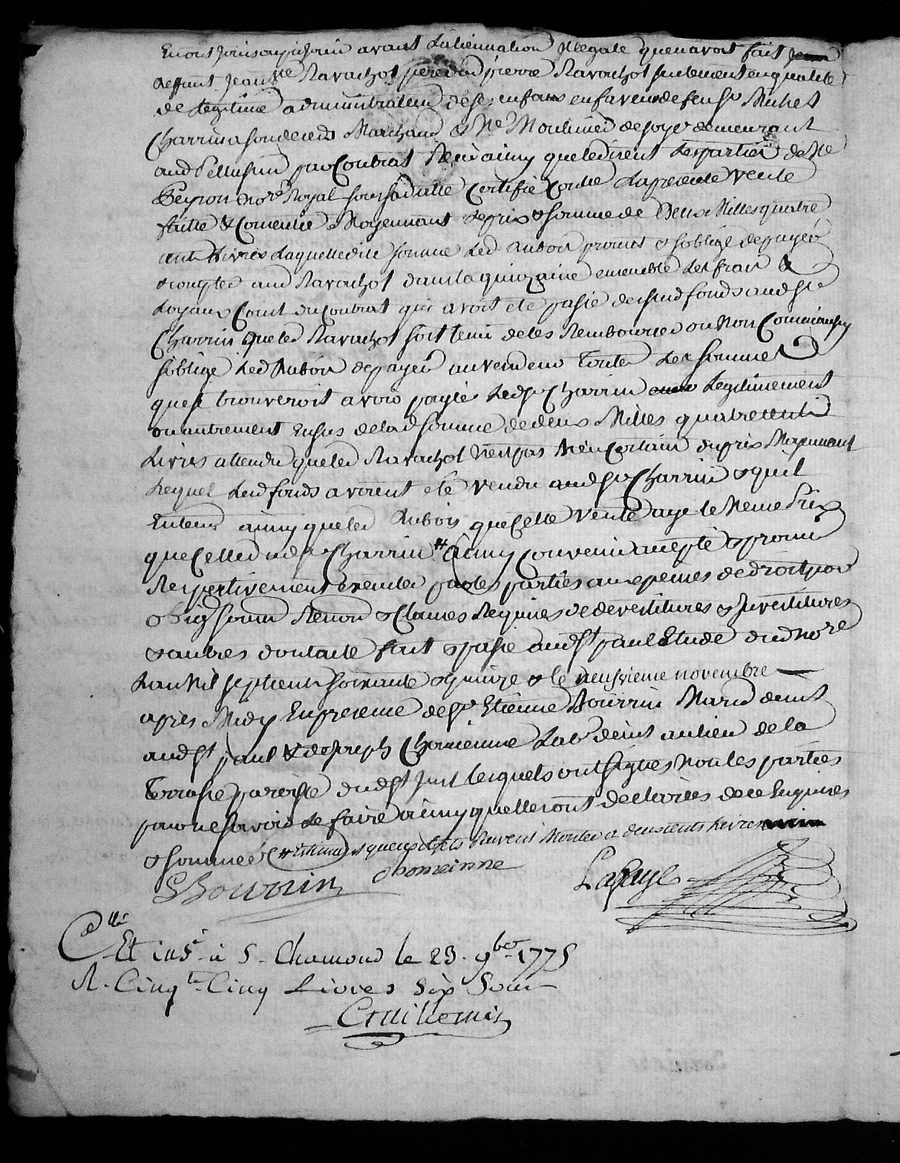 En ont joui aujourd'hui avant l'alliennation illegale qu'en avoit fait
deffunt Jean Bte Ravachol pere dud pierre Ravachol seulement en qualité
de legitime administrateur de ses enfans en faveur de feu sr Michel
Charrin a son deceds Marchand & Me Moulinier de soye demeurant
aud Pellussin par Contrat Reçu ainsy que le dirent les parties de Me
Peyron nore Royal sous sa datte Certifié Contre la presente Vente
faitte & Consentie Moyennant le prix & somme de Deux Milles quatre
cent Livres Laquelle dite somme led Auboin promet & s'oblige de payer
& compter aud Ravachol dans la quinzaine ensemble les frais &
Loyaux Couts du Contrat qui avoit eté passé desdud fonds aud sr
Charrin que led Ravachol soit tenu de les Rembourser ou Non Comme aussy
s'oblige led Auboin de payer au vendeur toute les sommes
que se trouveroit avoir payés led sr Charrin legitimement
ou autrement En sus de lad somme de deux Milles quatre cent
Livres attendu que led Ravachol n'est pas bien Certain du prix Moyennant
Lequel desd fonds avoient eté vendu aud sr Charrin & quil
Entend ainsy que led Auboin que Cette Vente aye le Meme Prix
que Celle dud sr Charrin # ainsy Convenu accepté & promis
Respectivement executer par les parties aux peines de droit par
oblig soum Renon & Clauses Requises de devestitures & Investitures
& autres dont acte fait & passé aud st paul Etude dud nore
L'an Mil septcent soixante & quinze & le deusvieme novembre
après Midy En presence de sr Etienne Bourrin Mard demt
aud st paul & de Joseph Chomienne Labr demt au lieu de la
terrasse paroisse dud st Just Lesquels ont signés Non les parties
pour ne savoir le faire ainsy qu'elles ont declarées de ce Enquises
& sommées # Estimant que ces objets peuvent Monter a deux cents Livres
EBourrin chomeinne Lafaye
Cllé
Et insé à S. Chamond le 23. 9bre 1775
R. Cinqte Cinq Livres Six Sous